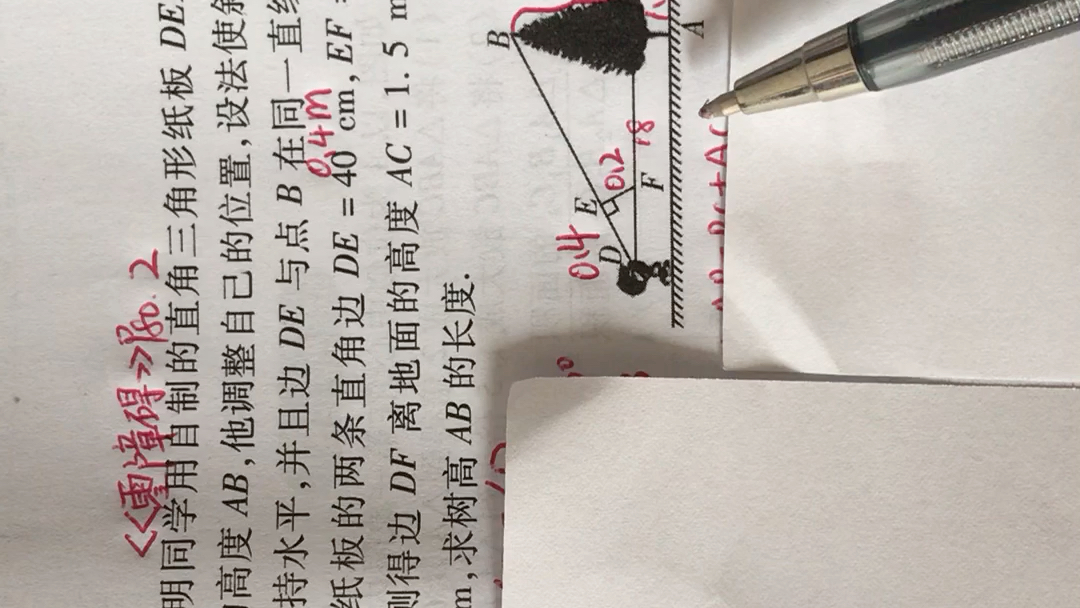 <<零障碍>>P80. 2
明同学用自制的直角三角形纸板 DE
高度 AB,他调整自己的位置,设法使斜
持水平,并且边 DE 与点 B 在同一直线
0.4m
纸板的两条直角边 DE = 40 cm, EF =
则得边 DF 离地面的高度 AC = 1.5 m
m,求树高 AB 的长度.
B
A
E
0.2
18
F
0.4
D